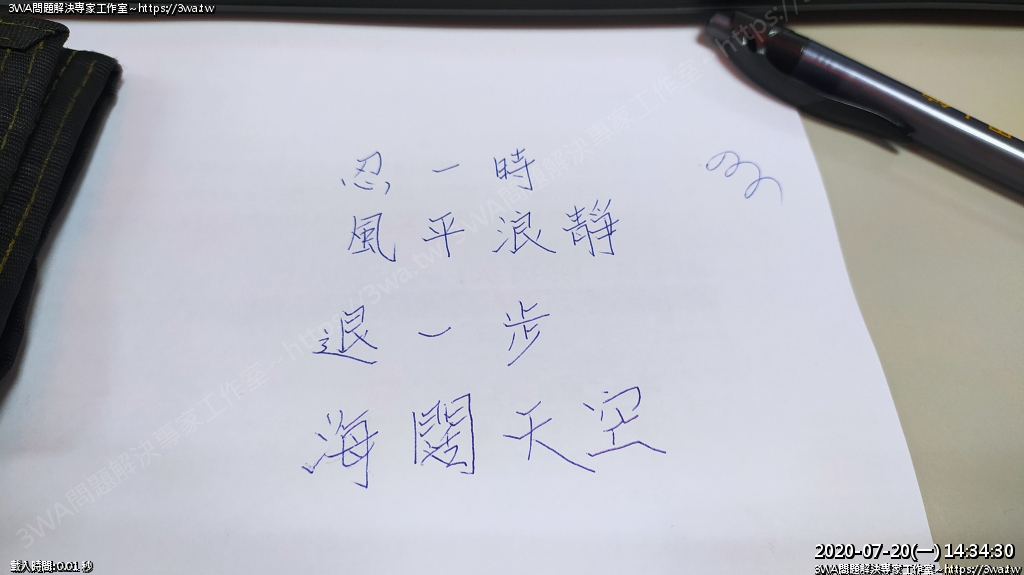 3WA問題解決專家工作室~https://3wa.tw
忍一時
風平浪靜
退一步
海闊天空
3WA問題解決專家工作室~https://3wa.tw
載入時間:0.01 秒
2020-07-20(一) 14:34:30
3WA問題解決專家工作室~https://3wa.tw